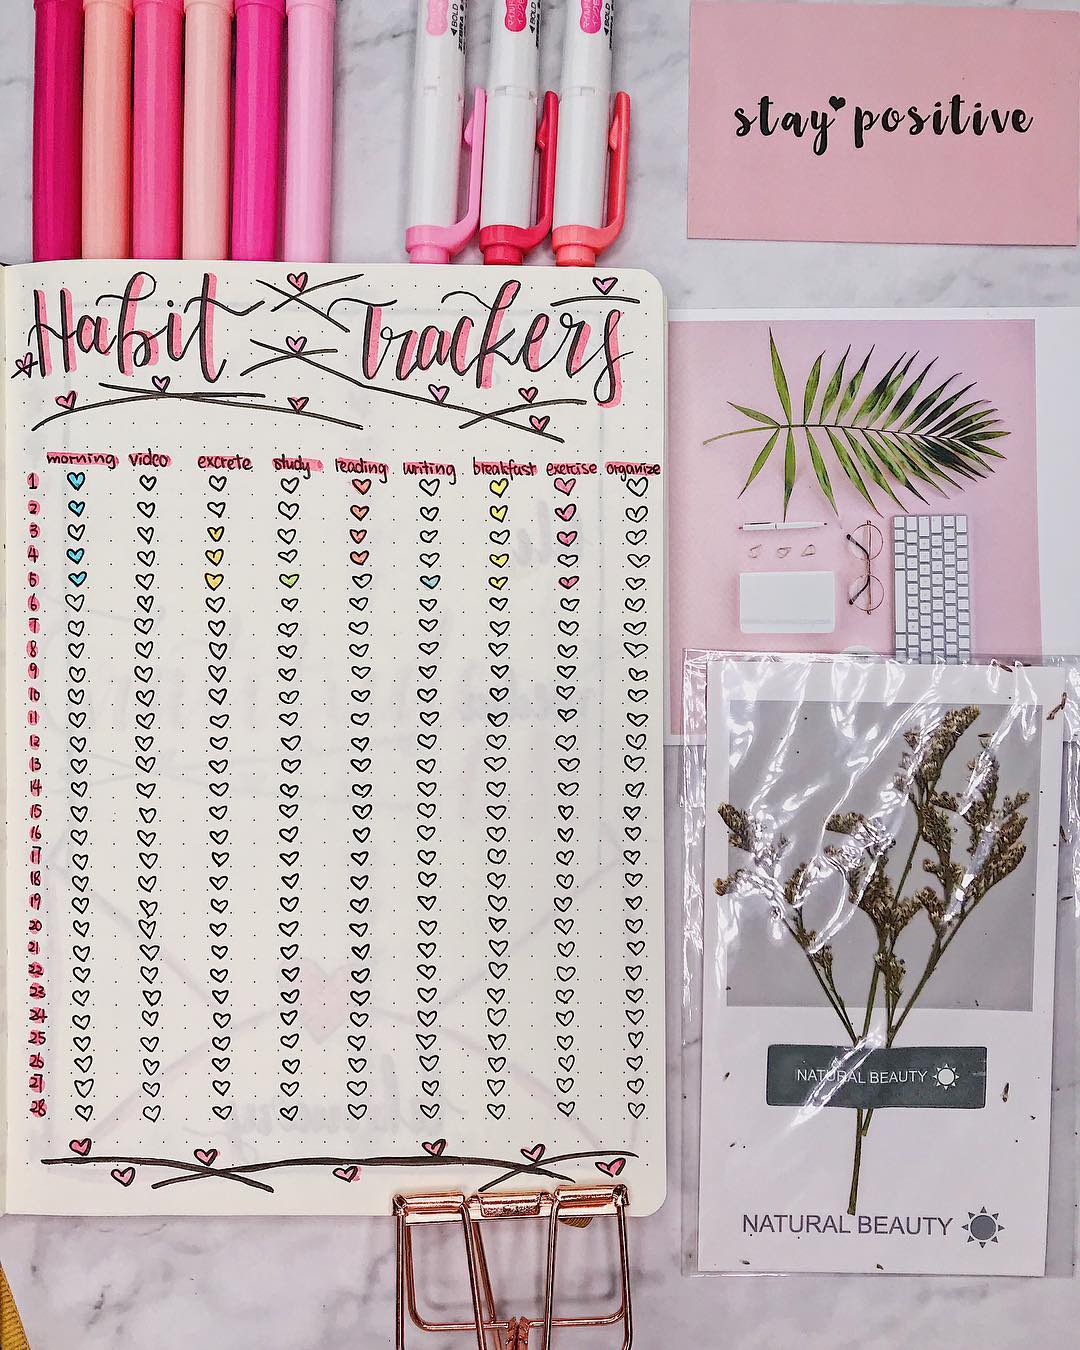 BOLD
ZEBRA
BOLD
BOLD
stay positive
Habit Trackers
morning video excrete study reading writing breakfast exercise organize
1
2
3
4
5
6
7
8
9
10
11
12
13
14
15
16
17
18
19
20
21
22
23
24
25
26
27
28
NATURAL BEAUTY
NATURAL BEAUTY